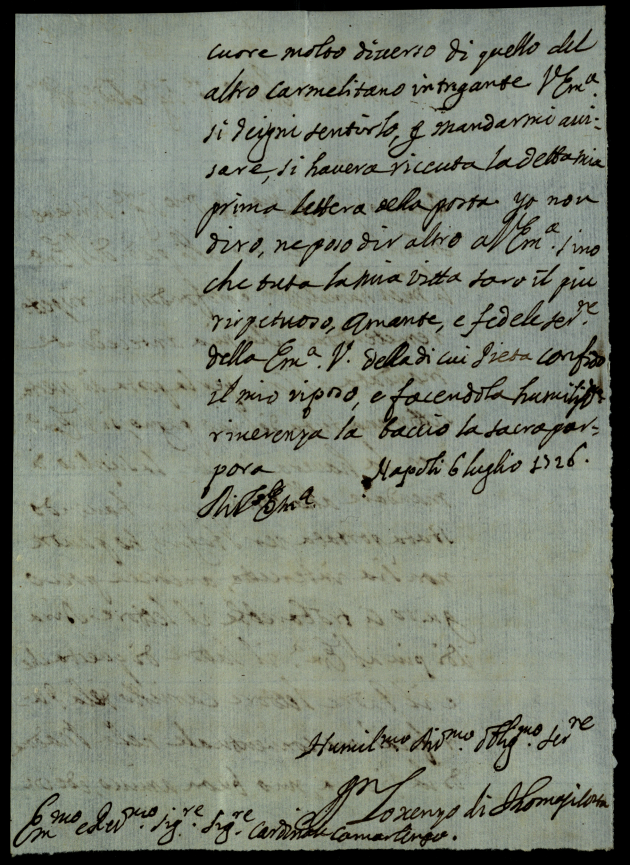 cuore molto diuerso di quello del
altro carmelitano intrigante V. Em.ª
si degni sentirlo, e mandarmi aui-
sare, si hauera riceuta la detta mia
prima lettera della posta yo non
diro, ne poso dir altro a V. Em.ª sino
che tuta la mia vitta saro il piu
rispetuoso, amante, e fedele ser.re
della Em.ª V. della di cui Pieta confido
il mio riposo, e facendola humiliss.
riuerenza la baccio la sacra por-
pora Napoli 6 luglio 1726.
Di V. Em.ª
Humil.mo Diu.mo Oblig.mo Ser.re
Lorenzo di
Em.mo e Reu.mo Sig.re Sig.re Cardinal Camarlengo.